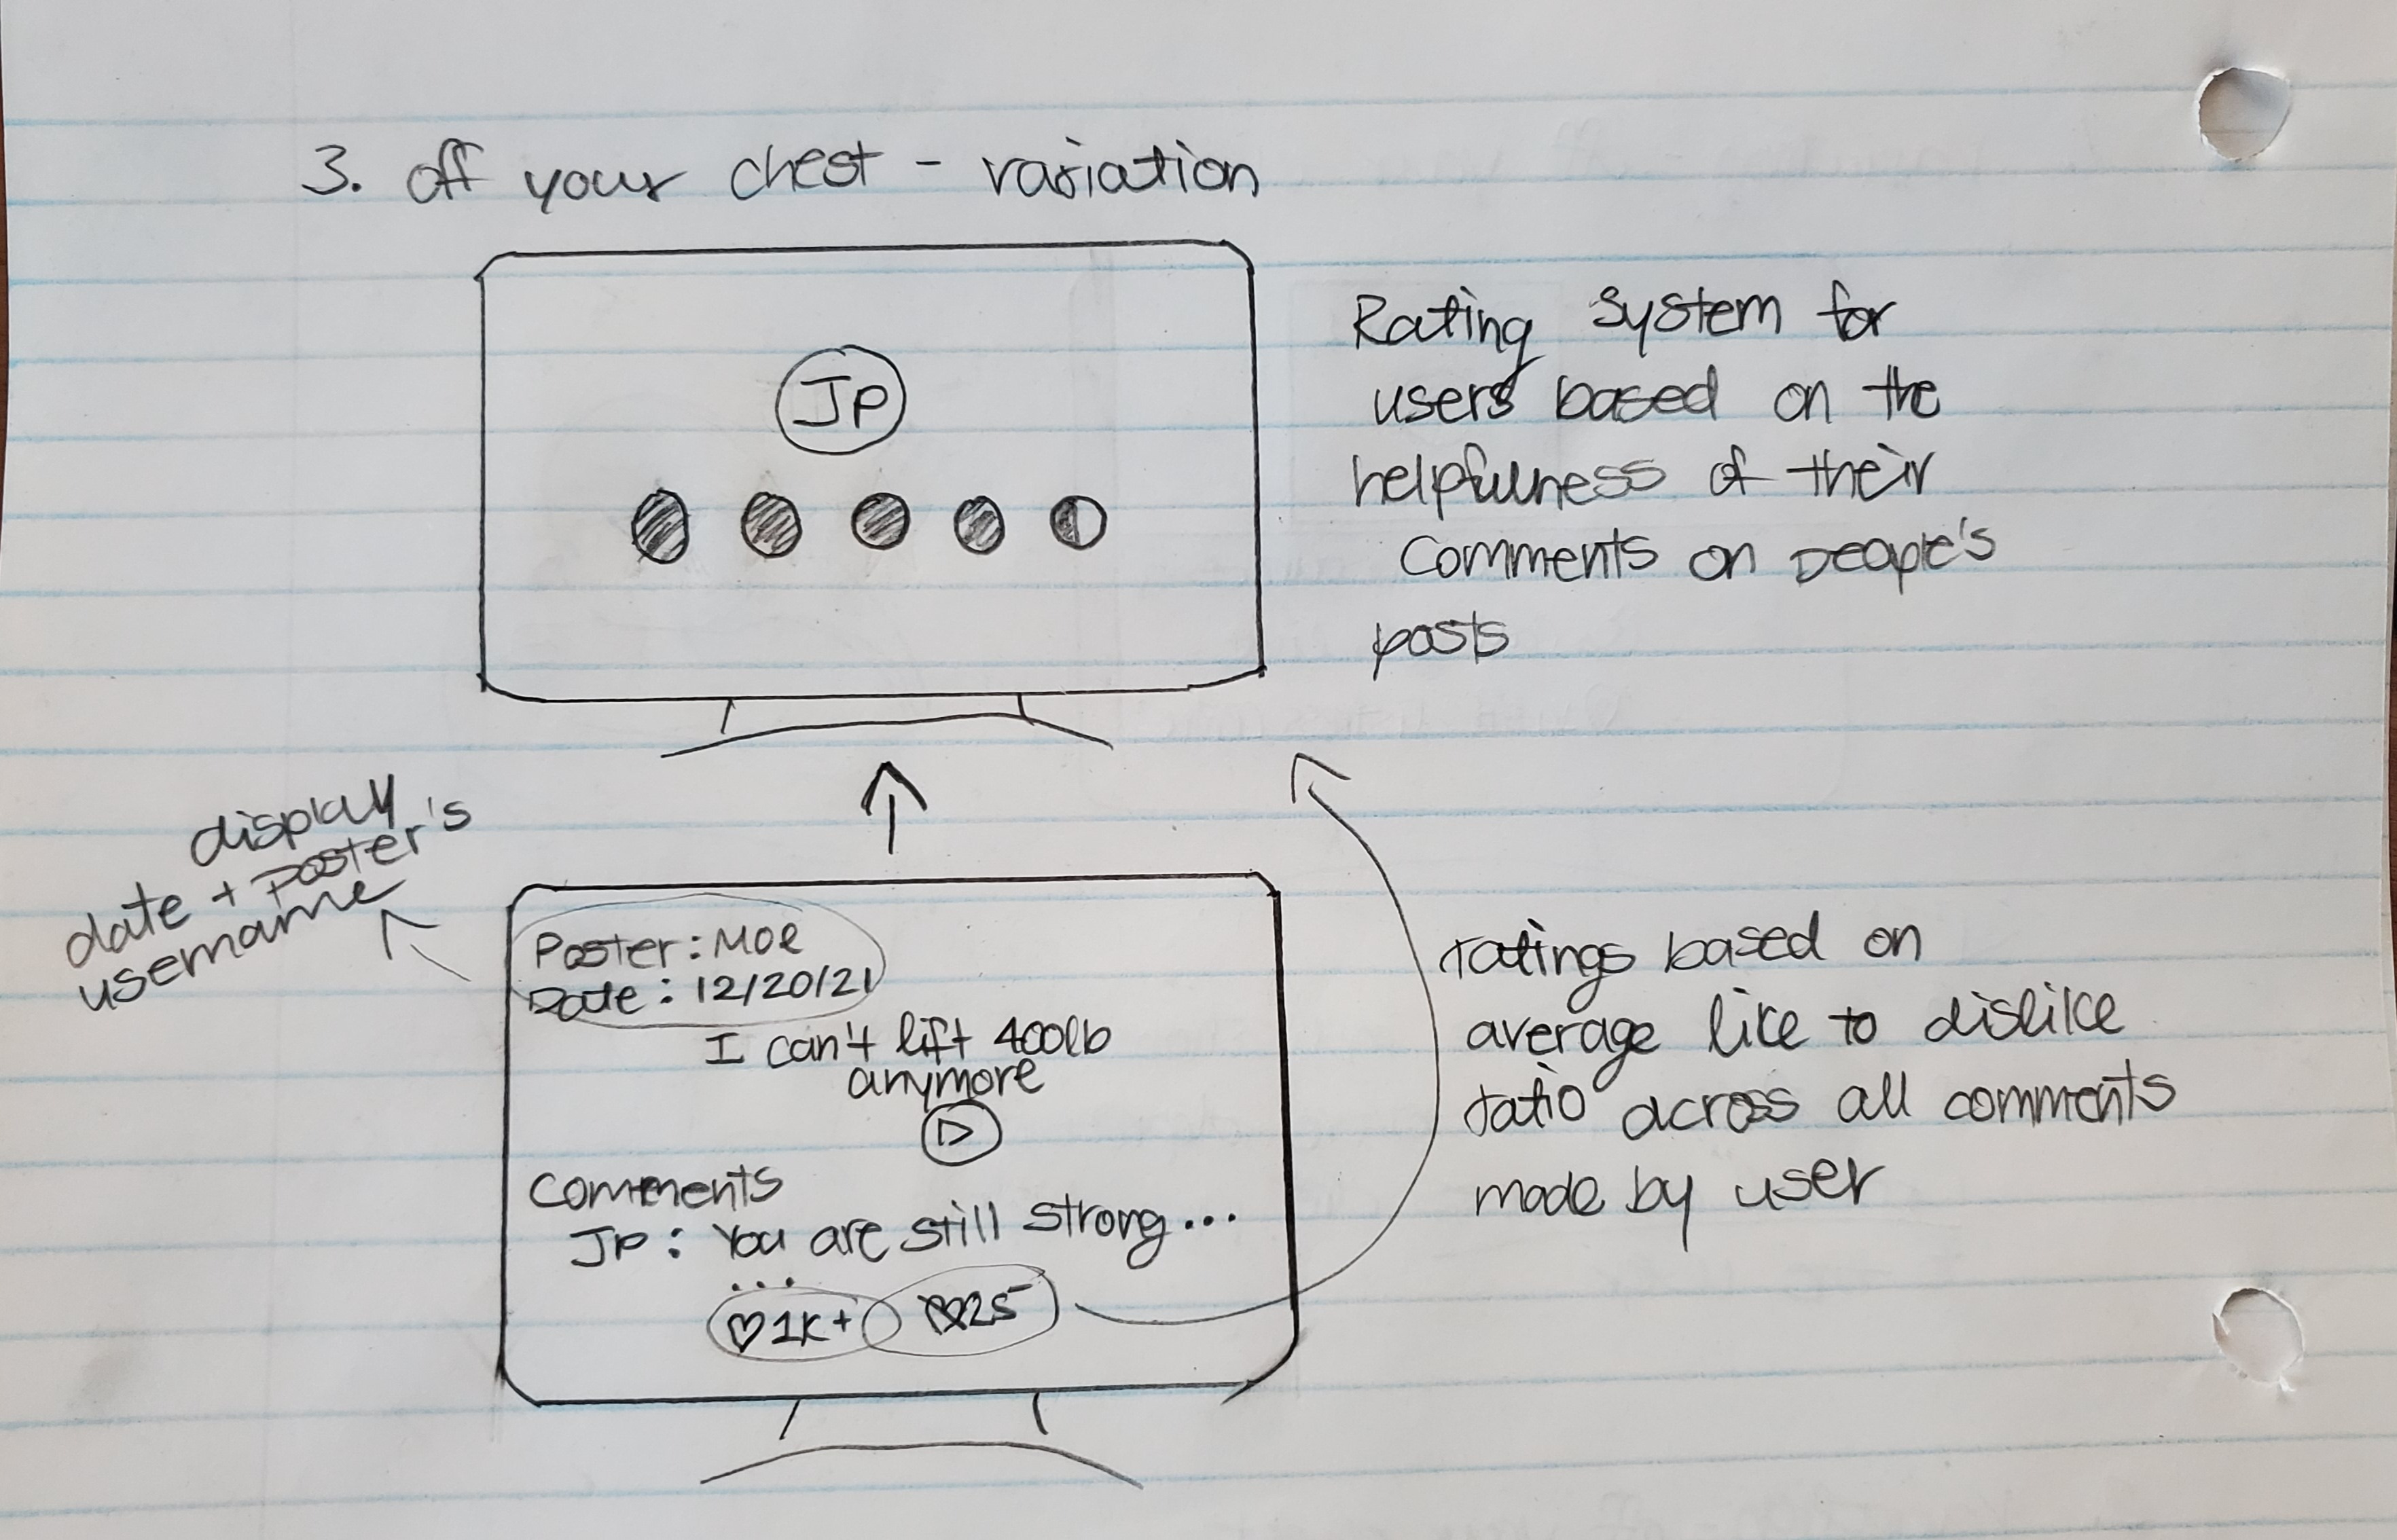 3. off your chest - variation
JP
Rating system for
users based on the
helpfulness of their
comments on people's
posts
display
date + poster's
username
Poster: Moe
Date: 12/20/21
I can't lift 400lb
anymore
Comments
JP: You are still strong...
...
♡1K+ 25
ratings based on
average like to dislike
ratio across all comments
made by user